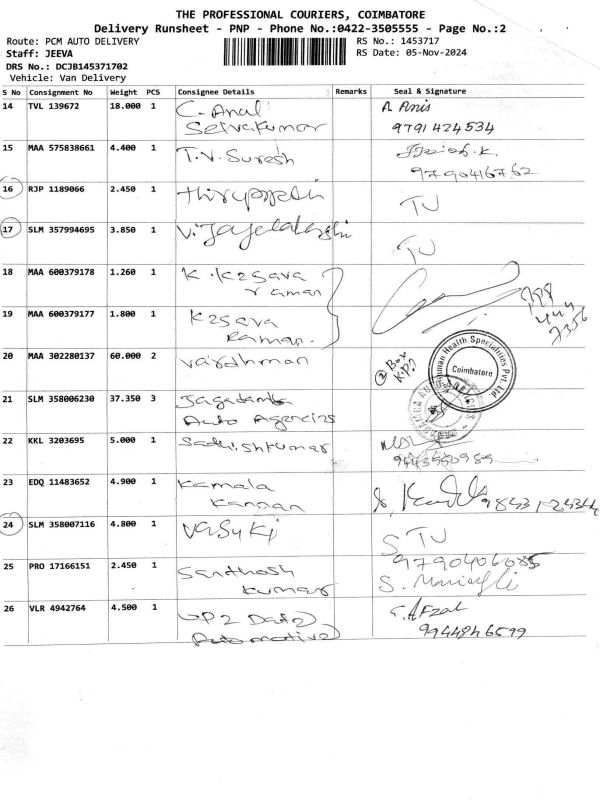 THE PROFESSIONAL COURIERS, COIMBATORE
Delivery Runsheet - PNP - Phone No.:0422-3505555 - Page No.:2
Route: PCM AUTO DELIVERY
RS No.: 1453717
Staff: JEEVA
RS Date: 05-Nov-2024
DRS No.: DCJB145371702
Vehicle: Van Delivery
S No Consignment No Weight PCS Consignee Details Remarks Seal & Signature
14 TVL 139672 18.000 1 C. Anal A. Anis
Selvakumar 9791424534
15 MAA 575838661 4.400 1 T.V. Suresh
9790416762
16 RJP 1189066 2.450 1 TU
17 SLM 357994695 3.850 1 TU
18 MAA 600379178 1.260 1 K. Kesava
raman
19 MAA 600379177 1.800 1 Kesava
Raman.
7356
20 MAA 302280137 60.000 2 Vardhman 2 Box
Health Specialities Pvt. Ltd.
Coimbatore
21 SLM 358006230 37.350 3 Jagadamba
Auto Agencies
22 KKL 3203695 5.000 1 Sadhishkumar
23 EDQ 11483652 4.900 1 Kamala
Kanaan
24 SLM 358007116 4.800 1 Vasuki TU
25 PRO 17166151 2.450 1 Santhosh 9790406085
kumar
26 VLR 4942764 4.500 1 UP 2 Date Afzal
Automotive 9944846599